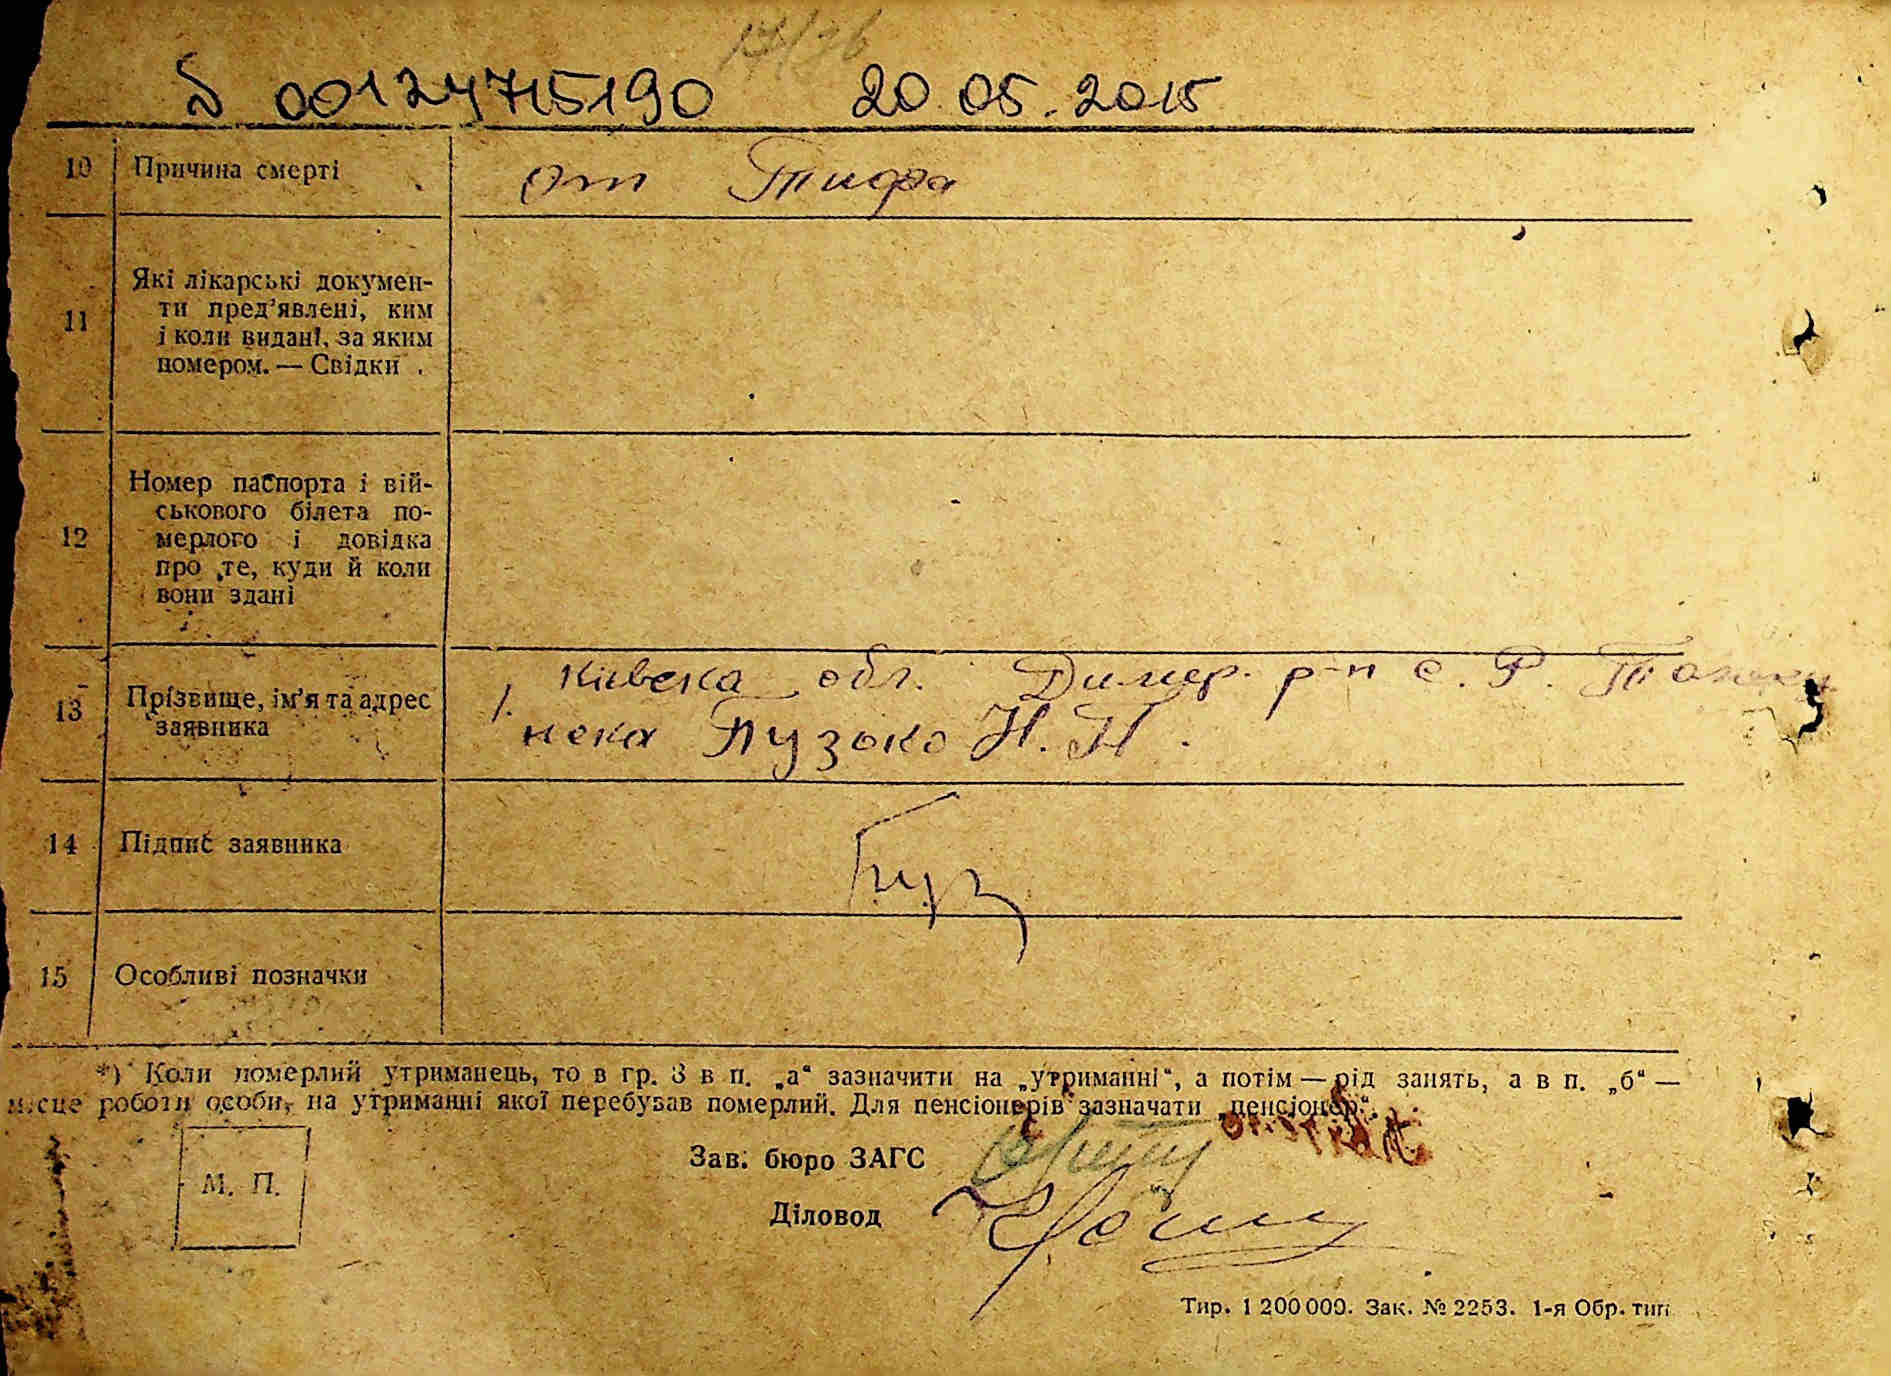 17/26
00124715190 20.05.2015
10 Причина смерті от Тифа
11 Які лікарські докумен-
ти пред'явлені, ким
і коли видані, за яким
номером. — Свідки .
12 Номер паспорта і вій-
ськового білета по-
мерлого і довідка
про те, куди й коли
вони здані
13 Прізвище, ім'я та адрес
заявника
Київска обл. Димер. р-н с. Р.
Пузько Н. Н.
14 Підпис заявника Пуз
15 Особливі позначки
*) Коли померлий утриманець, то в гр. 8 в п. „а“ зазначити на „утриманні“, а потім — рід занять, а в п. „б“ —
місце роботи особи, на утриманні якої перебував померлий. Для пенсіонерів зазначати „пенсіонер“.
М. П.
Зав. бюро ЗАГС
Діловод
Тир. 1 200 000. Зак. № 2253. 1-я Обр. тип